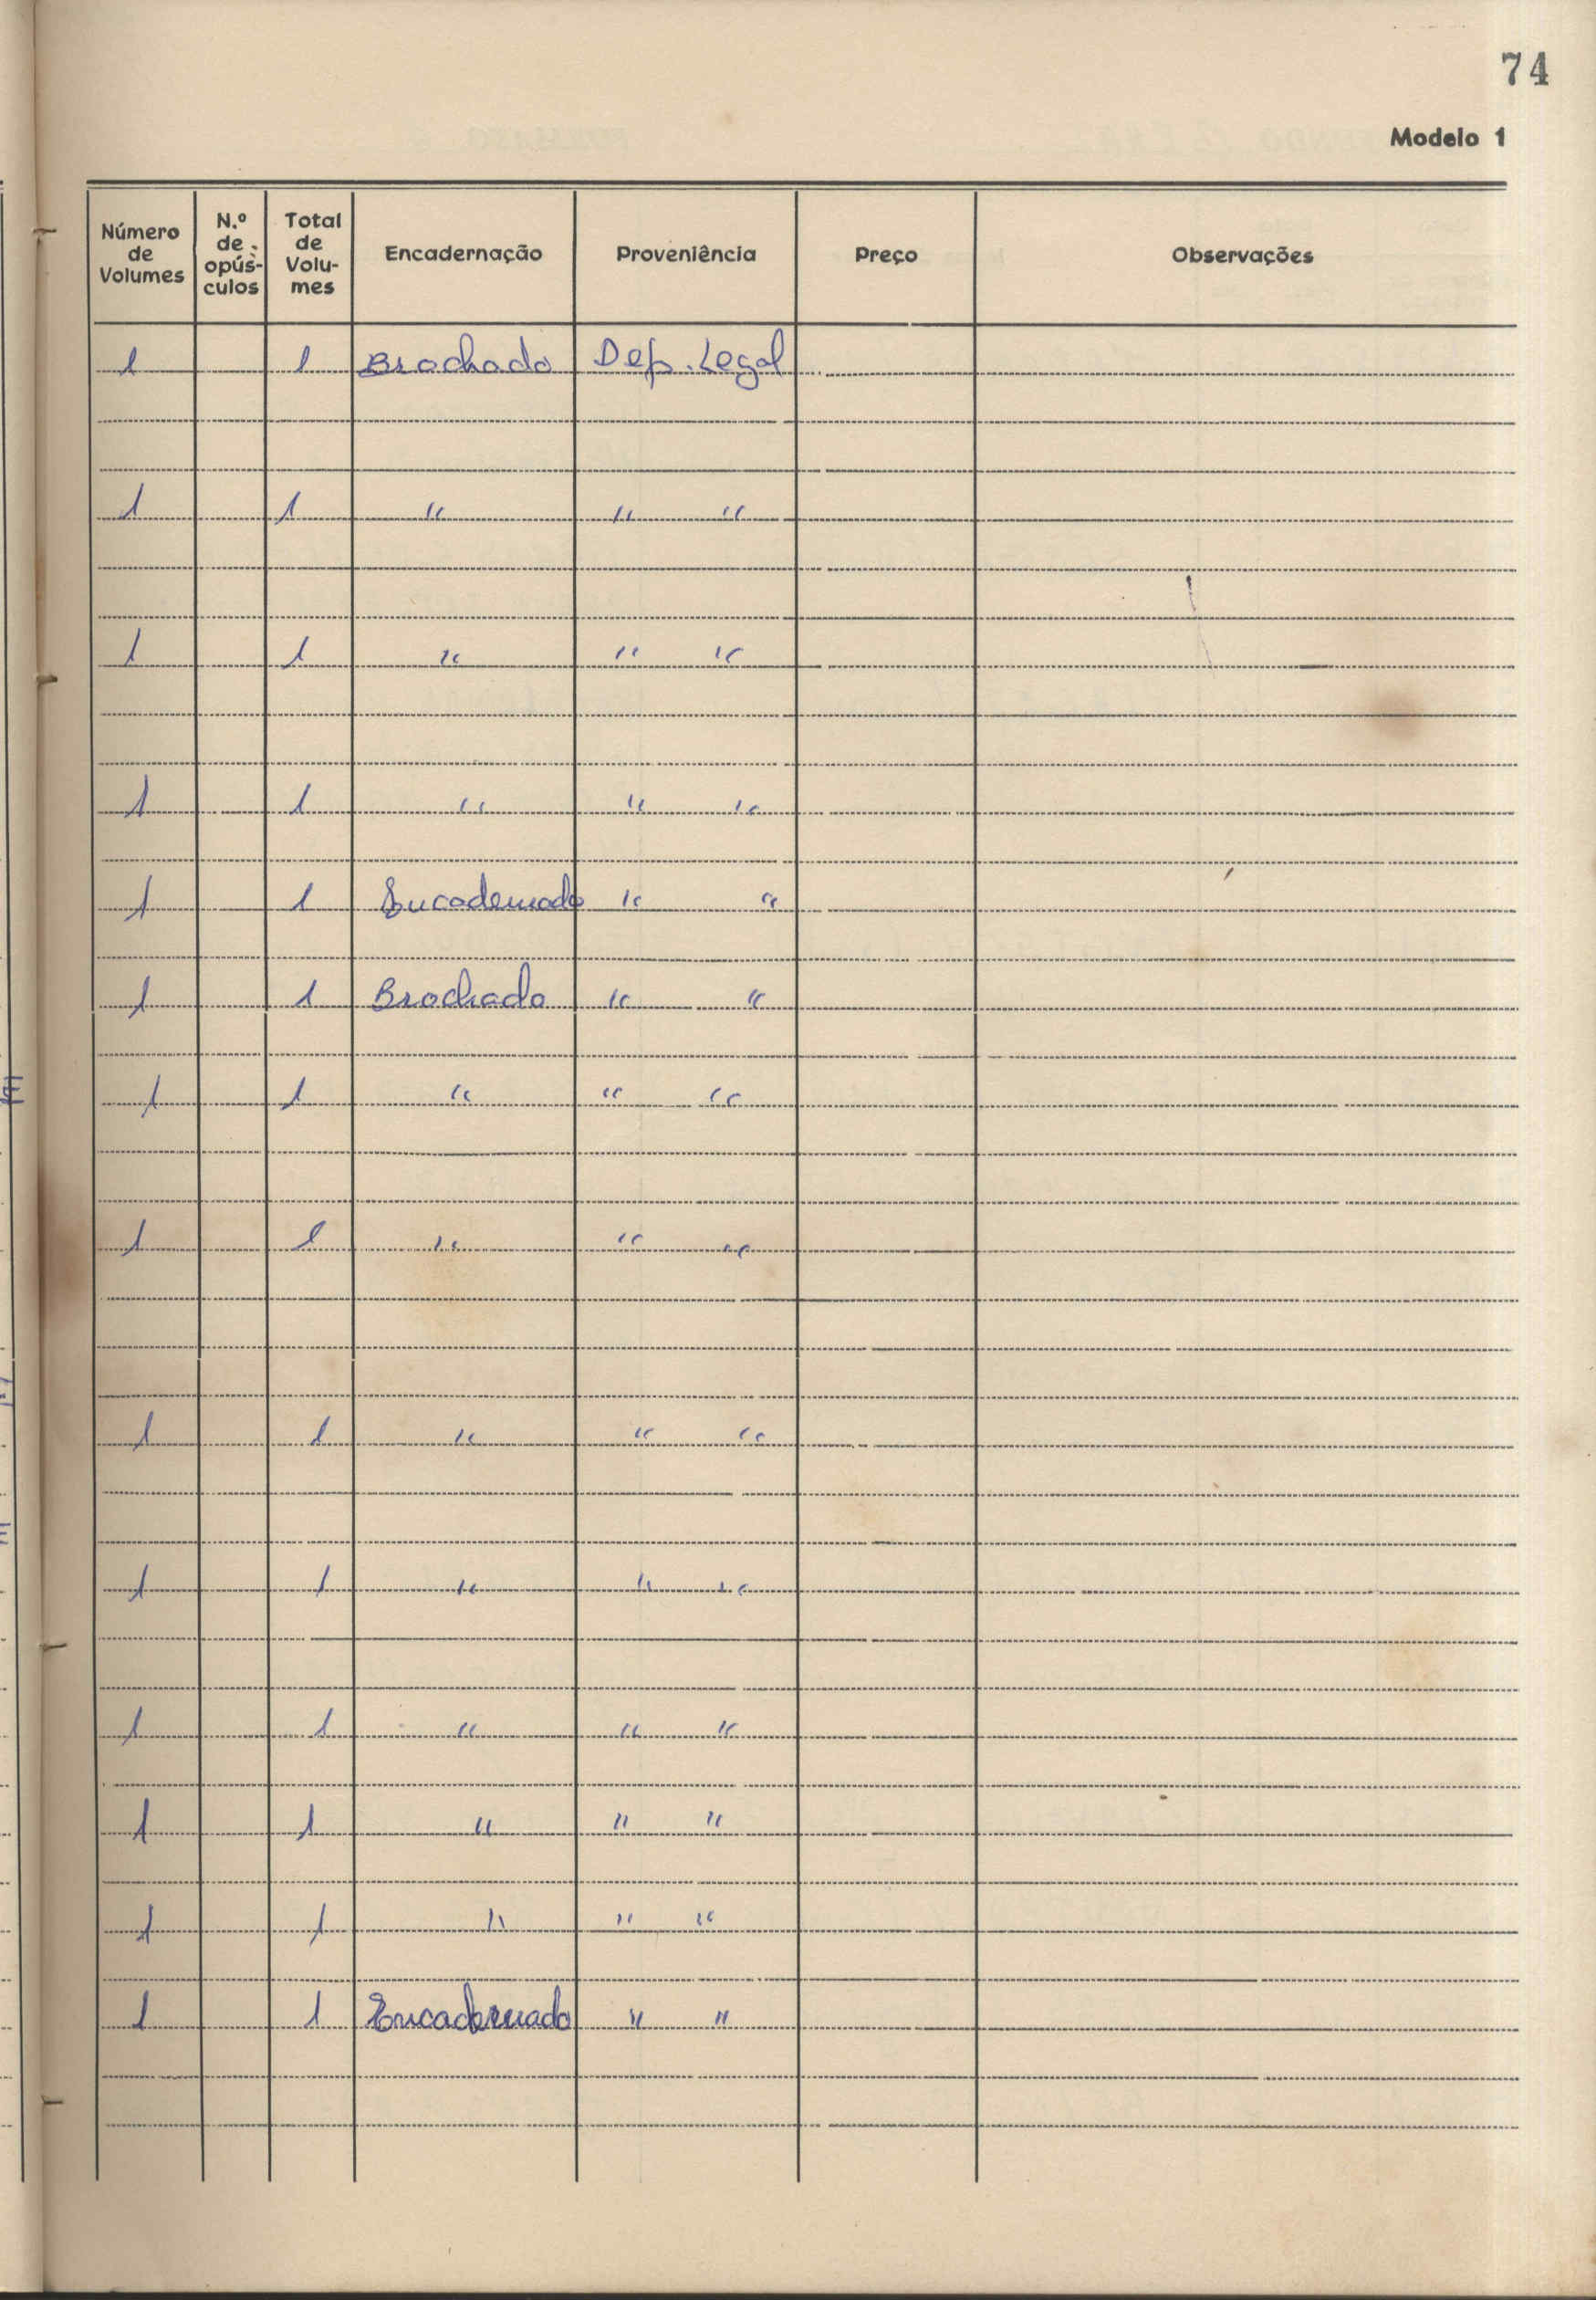 74
Modelo 1
Número de Volumes N.º de opús-culos Total de Volu-mes Encadernação Proveniência Preço Observações
1 1 Brochado Dep. Legal
1 1 " " "
1 1 " " "
1 1 " " "
1 1 Encadernado " "
1 1 Brochado " "
1 1 " " "
1 1 " " "
1 1 " " "
1 1 " " "
1 1 " " "
1 1 " " "
1 1 " " "
1 1 Encadernado " "